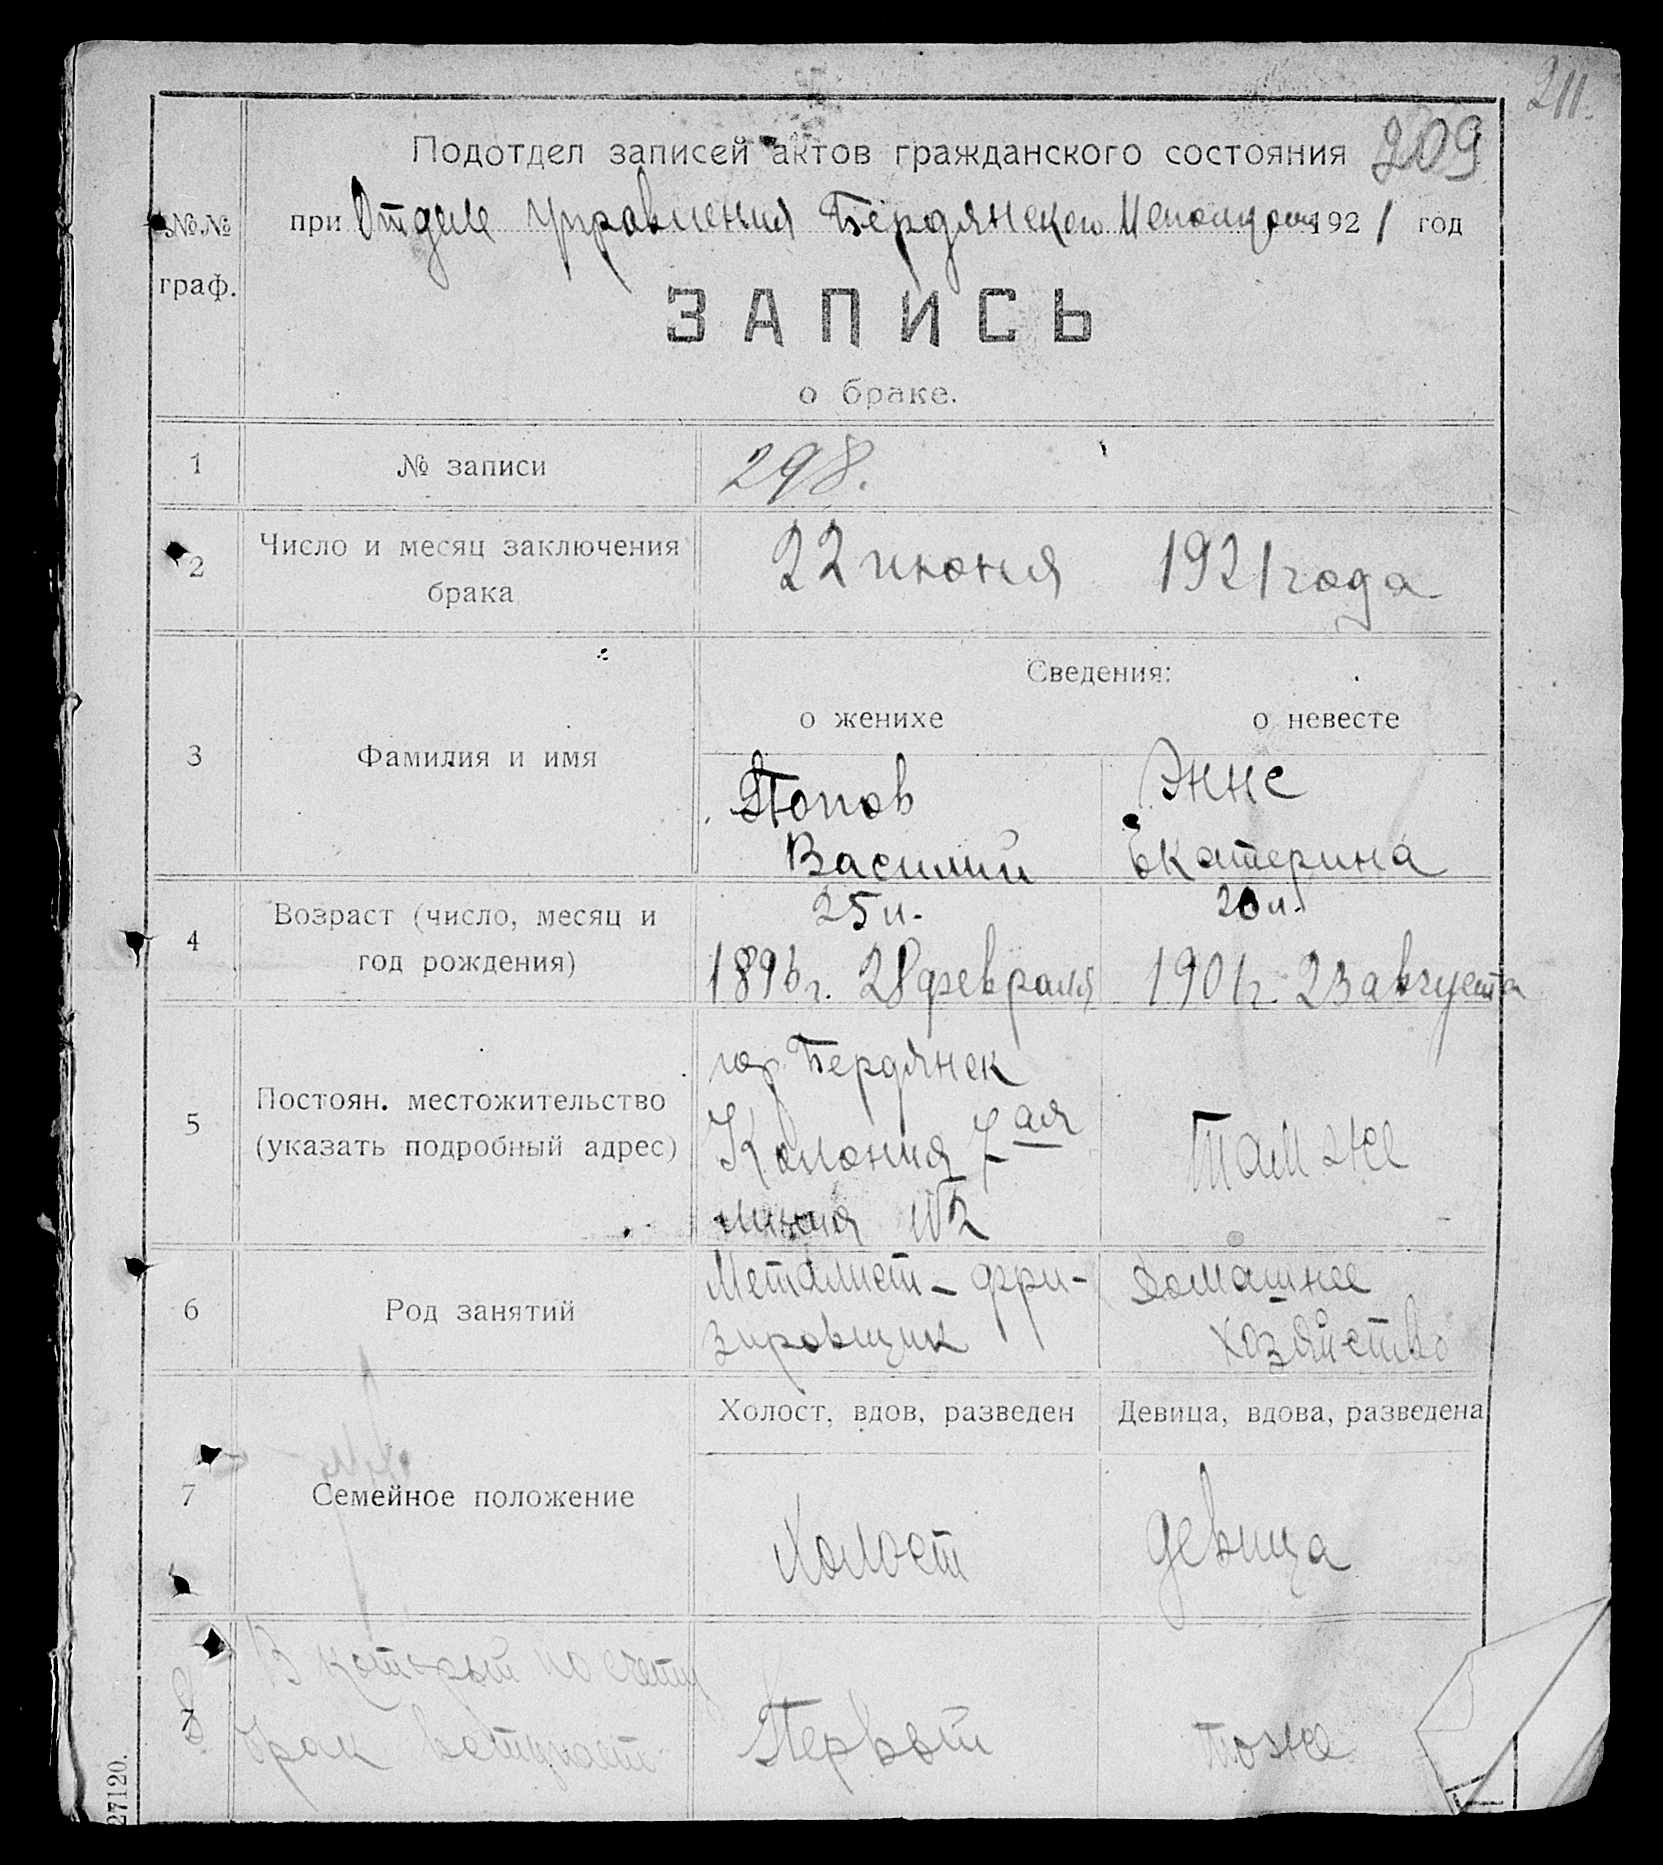 211.
Подотдел записей актов гражданского состояния 209
№№ при Отделе Управления Бердянского Исполкома 1921 год
граф.
ЗАПИСЬ
о браке.
1 № записи 298.
2 Число и месяц заключения брака 22 июня 1921 года
Сведения:
о женихе о невесте
3 Фамилия и имя
Попов Энне
Василий Екатерина
4 Возраст (число, месяц и год рождения)
25 л. 20 л.
1896 г. 28 февраля 1901 г. 23 августа
5 Постоян. местожительство
(указать подробный адрес)
гор Бердянск
Колония 7ая Там же
линия №2
6 Род занятий
Металист - фри- Домашнее
зировщик хозяйство
Холост, вдов, разведен Девица, вдова, разведена
7 Семейное положение
Холост девица
8 В который по счету
брак вступает Первый тоже
27120.